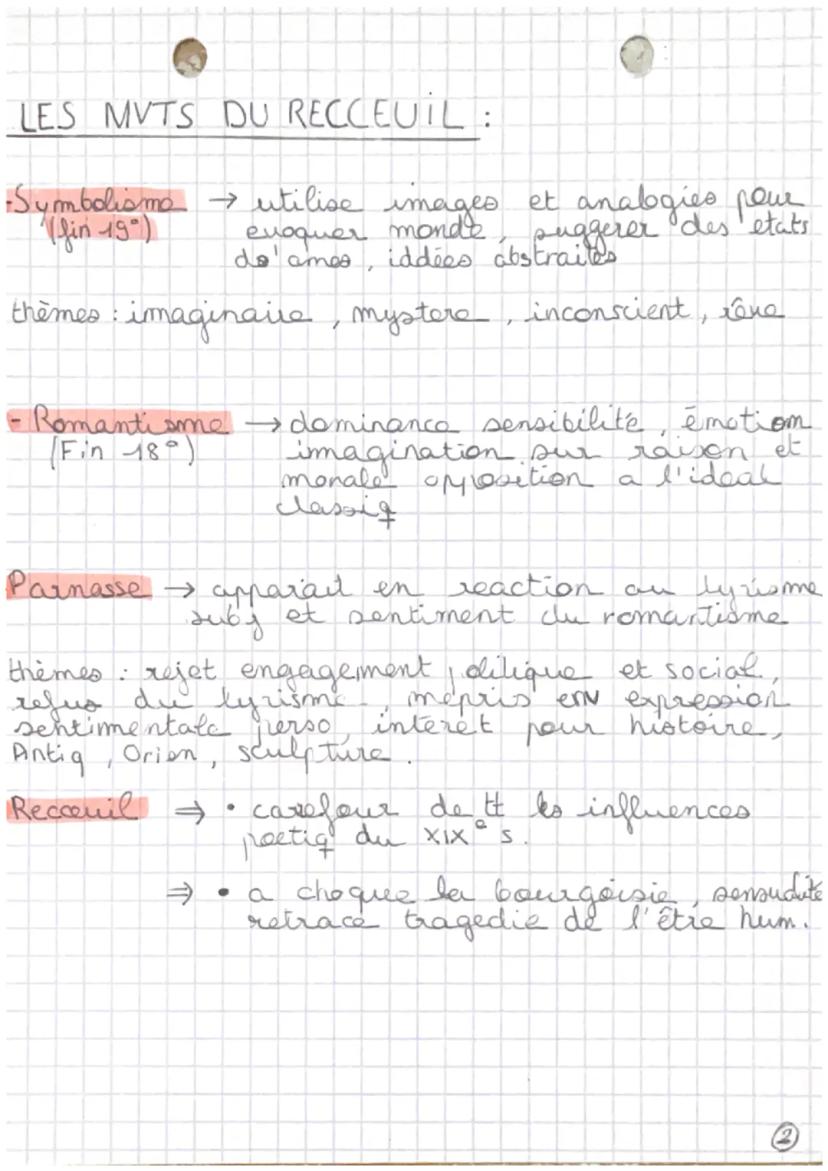 LES MVTS DU RECCEUIL :
-Symbolisme → utilise images et analogies pour
(fin 19°) evoquer monde, suggerer des etats
de'ames, iddées abstraites
thèmes : imaginaire, mystere, inconscient, rêve
- Romantisme → dominance sensibilité, émotion
(Fin 18°) imagination sur raison et
morale opposition a l'ideal
classiq
Parnasse → apparait en reaction au lyrisme
subj et sentiment du romartisme
thèmes : rejet engagement politique et social,
refus du lyrisme, mépris env expression
sentimentale perso, interet pour histoire,
Antiq, Orien, sculpture.
Reccueil ⇒ • carefour de tt les influences
poetiq du XIXe s.
⇒ • a choque la bourgoisie, sensualité
retrace tragedie de l'être hum.
2